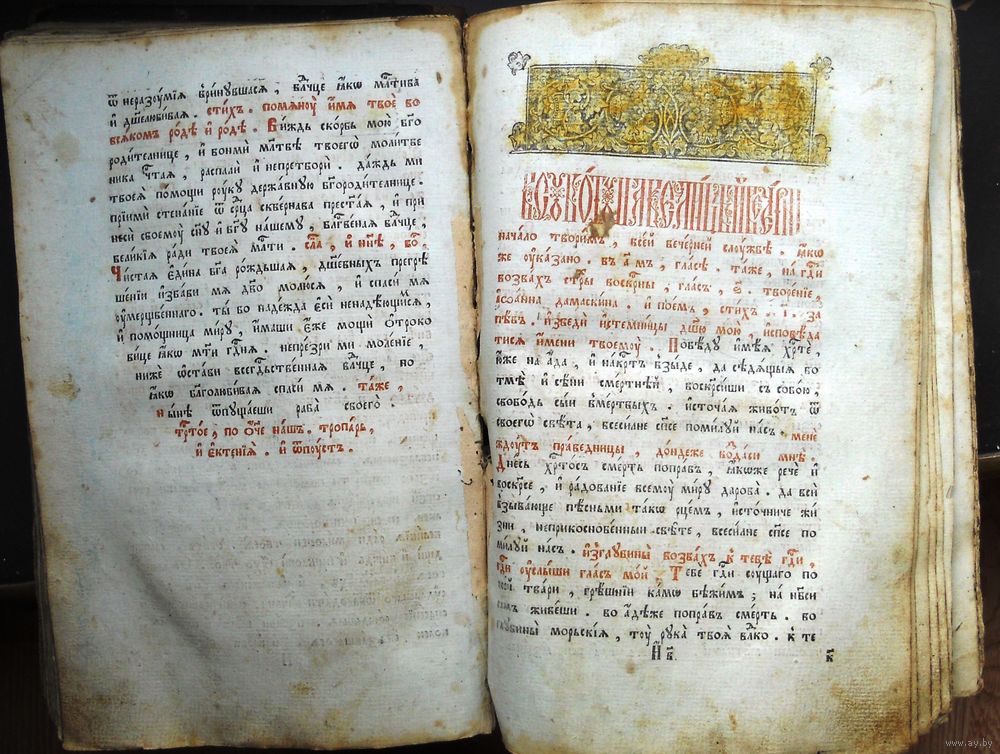 ѿ неразꙋмїѧ вринꙋвшасѧ , вл҃чце ꙗкѡ мл҃тива
и҆ дш҃елюбиваѧ . стихъ . помѧнꙋ и҆мѧ твое во
всѧкомъ родѣ и҆ родѣ . Виждь скорбь мою бг҃о
родителнице , и҆ вонми мл҃твѣ твоегѡ молитве
ника чт҃аѧ , распали и҆ непретвори . даждь ми
твоеѧ помощи рꙋкꙋ державнꙋю бг҃ородителнице .
прїими стенанїе ѿ ср҃ца сквернава прест҃аѧ , и҆ при
неси своемꙋ сн҃ꙋ и҆ бг҃ꙋ нашемꙋ , блг҃веннаѧ вл҃чце ,
великїѧ ради твоеѧ мл҃ти . сла҃ , и҆ нн҃ѣ , бо҃ .
Чистаѧ є҆дина бг҃а рождьшаѧ , дш҃евныхъ прегрѣ
шенїи и҆збави мѧ дв҃о молюсѧ , и҆ спаси мѧ
ꙋмерщвеннаго . ты бо надежда є҆си ненадѣющихсѧ ,
и҆ помощница мирꙋ , и҆маши є҆же мощи ѻ҆троко
вице ꙗкѡ мт҃и гд҃нѧ . непрезри ми моленїе ,
нижѐ ѡ҆стави всегдьственнаѧ вл҃чце , но
ꙗкѡ бл҃голюбиваѧ спаси мѧ . таже ,
нынѣ ѿпꙋщаеши раба своего .
трт҃ое , по ѻ҆ч҃е нашъ . тропарь ,
и҆ є҆ктенїѧ . и҆ ѿпꙋстъ .
начало творимъ , всей вечерней слꙋжбѣ , ꙗкѡ
же ᲂу҆казано . въ а҃мъ , гласѣ . таже , на гд҃и
воззвахъ ст҃ры воскр҃ны , гласъ , и҃ . творенїе ,
і҆ѡанна дамаскина . и҆ поемъ , стихъ . і҃ . за
пѣвъ . и҆зведи и҆стемницы дш҃ꙋ мою , и҆сповѣда
тисѧ и҆мени твоемꙋ . Побѣдꙋ и҆мѣѧ хр҃те ,
ю҆же на а҆да , и҆ на крт҃ъ взыде , да сѣдѧщыѧ во
тмѣ и҆ сѣни смертнѣй , воскр҃сиши съ собою ,
свободь сыи вмертвыхъ . и҆сточаѧ животъ ѿ
своегѡ свѣта , всесилне сп҃се помилꙋй насъ . мене
ждꙋтъ праведницы , дондеже воздаси мнѣ .
Днесь хр҃тосъ смерть поправъ , ꙗкоже рече и҆
воскр҃се , и҆ радованїе всемꙋ мирꙋ дарова . да вси
взывающе пѣсньми такѡ рцемъ , и҆сточниче жи
зни , неприкосновенныи свѣте , всесилне сп҃се по
милꙋй насъ . и҆зглꙋбины воззвахъ к тебѣ гд҃и ,
гд҃и ᲂу҆слыши гласъ мой . Тебе гд҃и сꙋщаго по
всей твари , грѣшнїи камѡ бѣжимъ ; на нб҃си
живеши . во а҆дѣже поправъ смерть . во
глꙋбины морьскїѧ , тоу рꙋка твоѧ вл҃ко . к те
к
www.ay.by